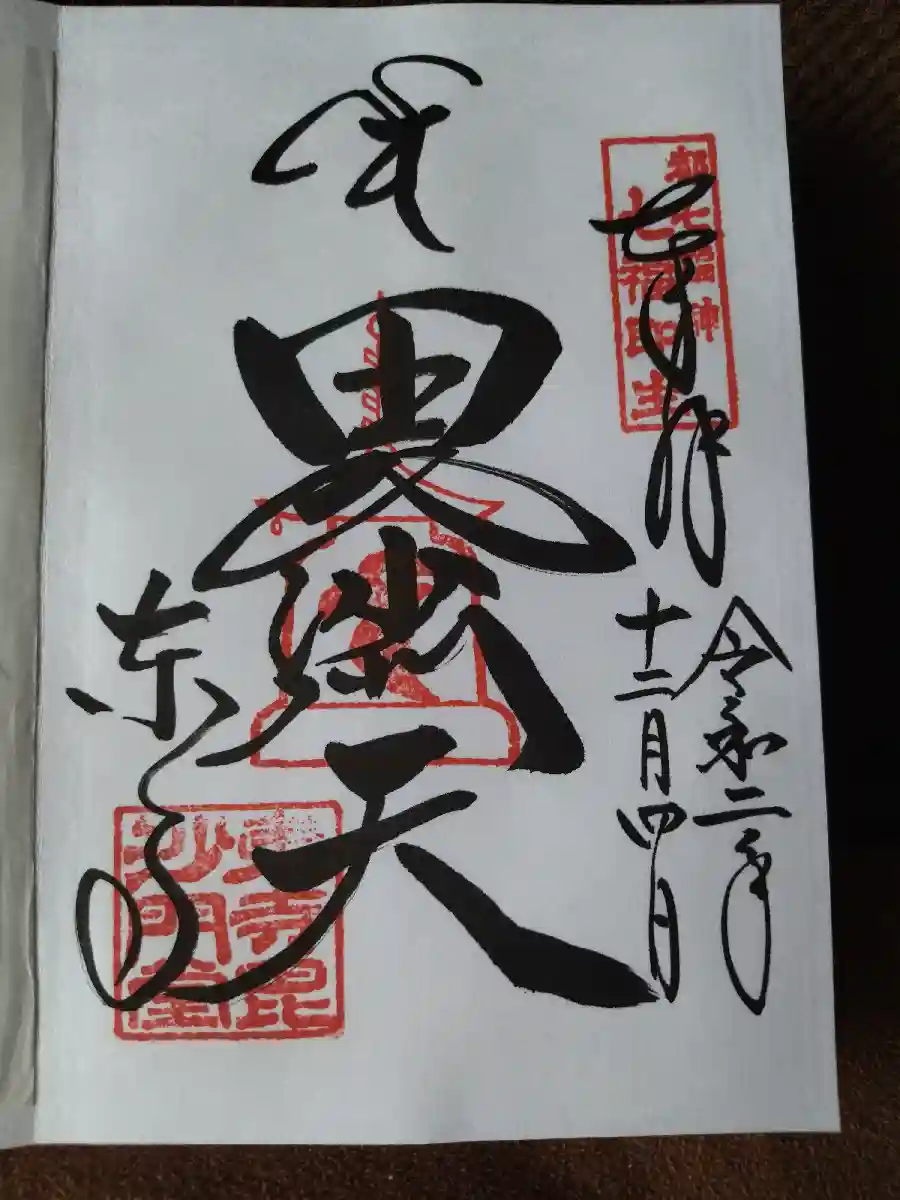 都七福神
七福即生
奉拝
令和二年
十二月四日
毘沙門天
東寺
東寺毘
沙門堂